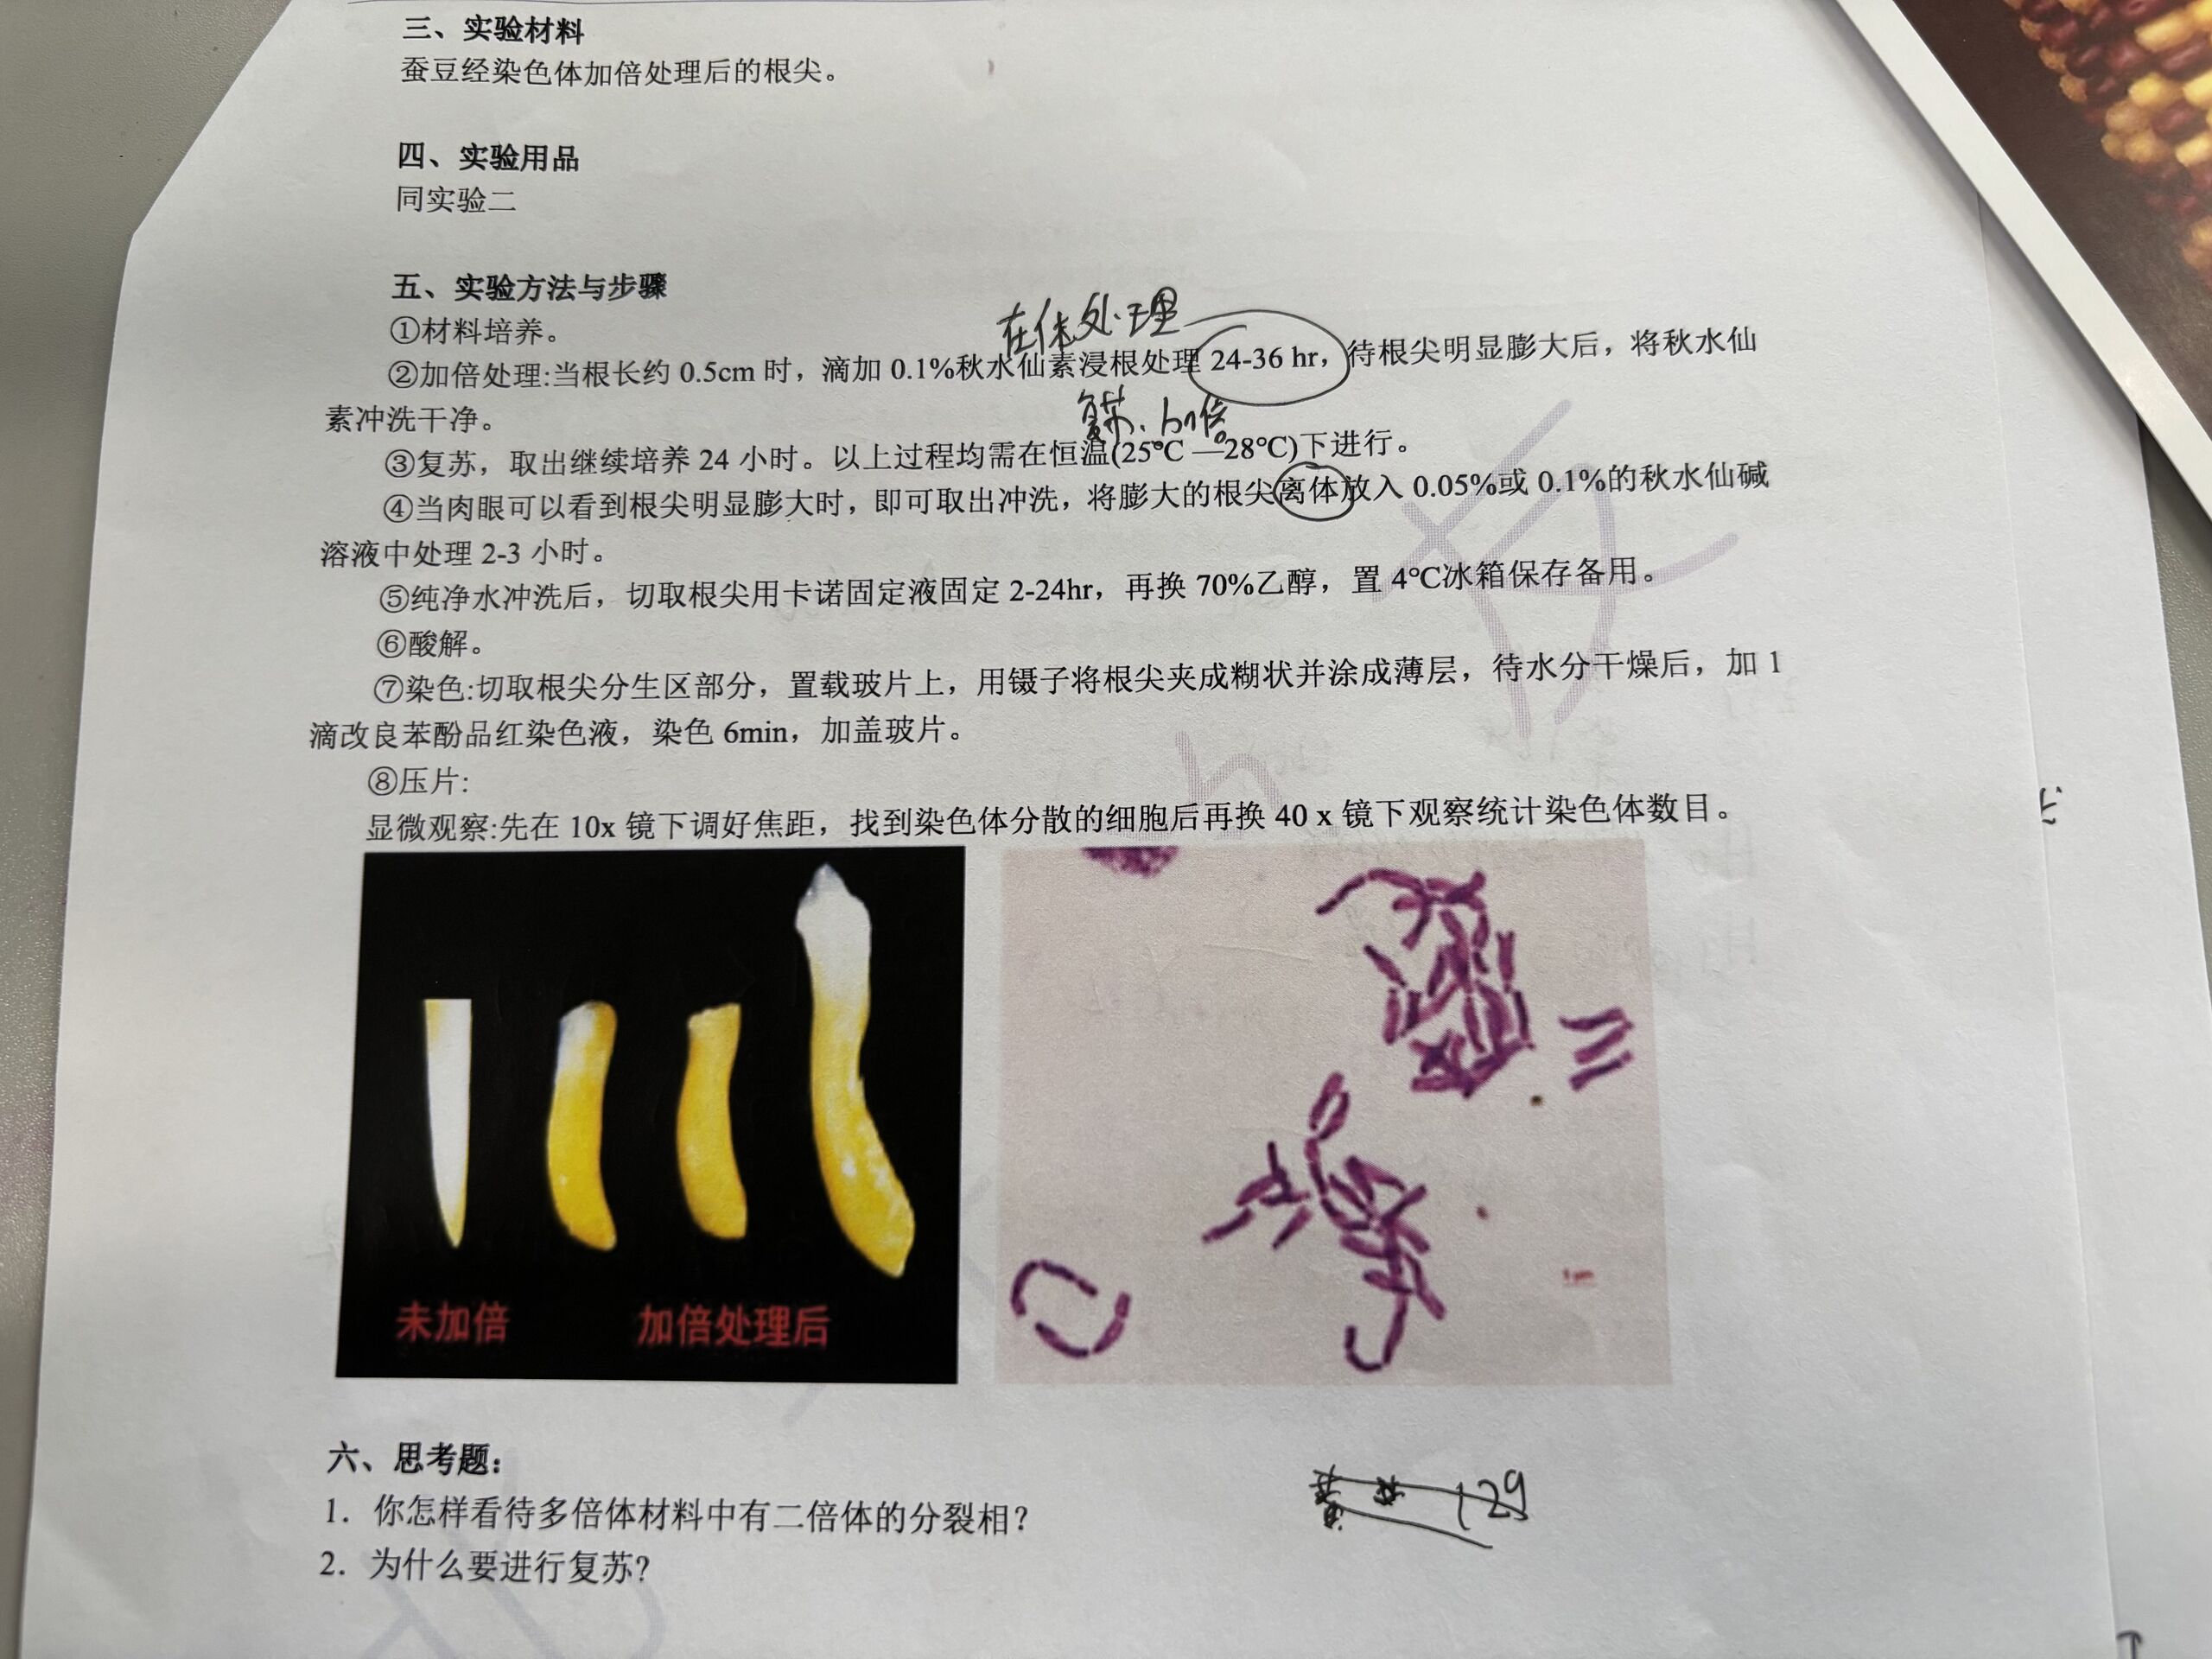 三、实验材料
蚕豆经染色体加倍处理后的根尖。
四、实验用品
同实验二
五、实验方法与步骤
①材料培养。
在体处理
②加倍处理:当根长约 0.5cm 时，滴加 0.1%秋水仙素浸根处理 24-36 hr，待根尖明显膨大后，将秋水仙
素冲洗干净。
加倍
③复苏，取出继续培养 24 小时。以上过程均需在恒温(25℃ —28℃)下进行。
④当肉眼可以看到根尖明显膨大时，即可取出冲洗，将膨大的根尖离体放入 0.05%或 0.1%的秋水仙碱
溶液中处理 2-3 小时。
⑤纯净水冲洗后，切取根尖用卡诺固定液固定 2-24hr，再换 70%乙醇，置 4℃冰箱保存备用。
⑥酸解。
⑦染色:切取根尖分生区部分，置载玻片上，用镊子将根尖夹成糊状并涂成薄层，待水分干燥后，加 1
滴改良苯酚品红染色液，染色 6min，加盖玻片。
⑧压片:
显微观察:先在 10x 镜下调好焦距，找到染色体分散的细胞后再换 40 x 镜下观察统计染色体数目。
未加倍
加倍处理后
六、思考题：
1. 你怎样看待多倍体材料中有二倍体的分裂相？
129
2. 为什么要进行复苏？